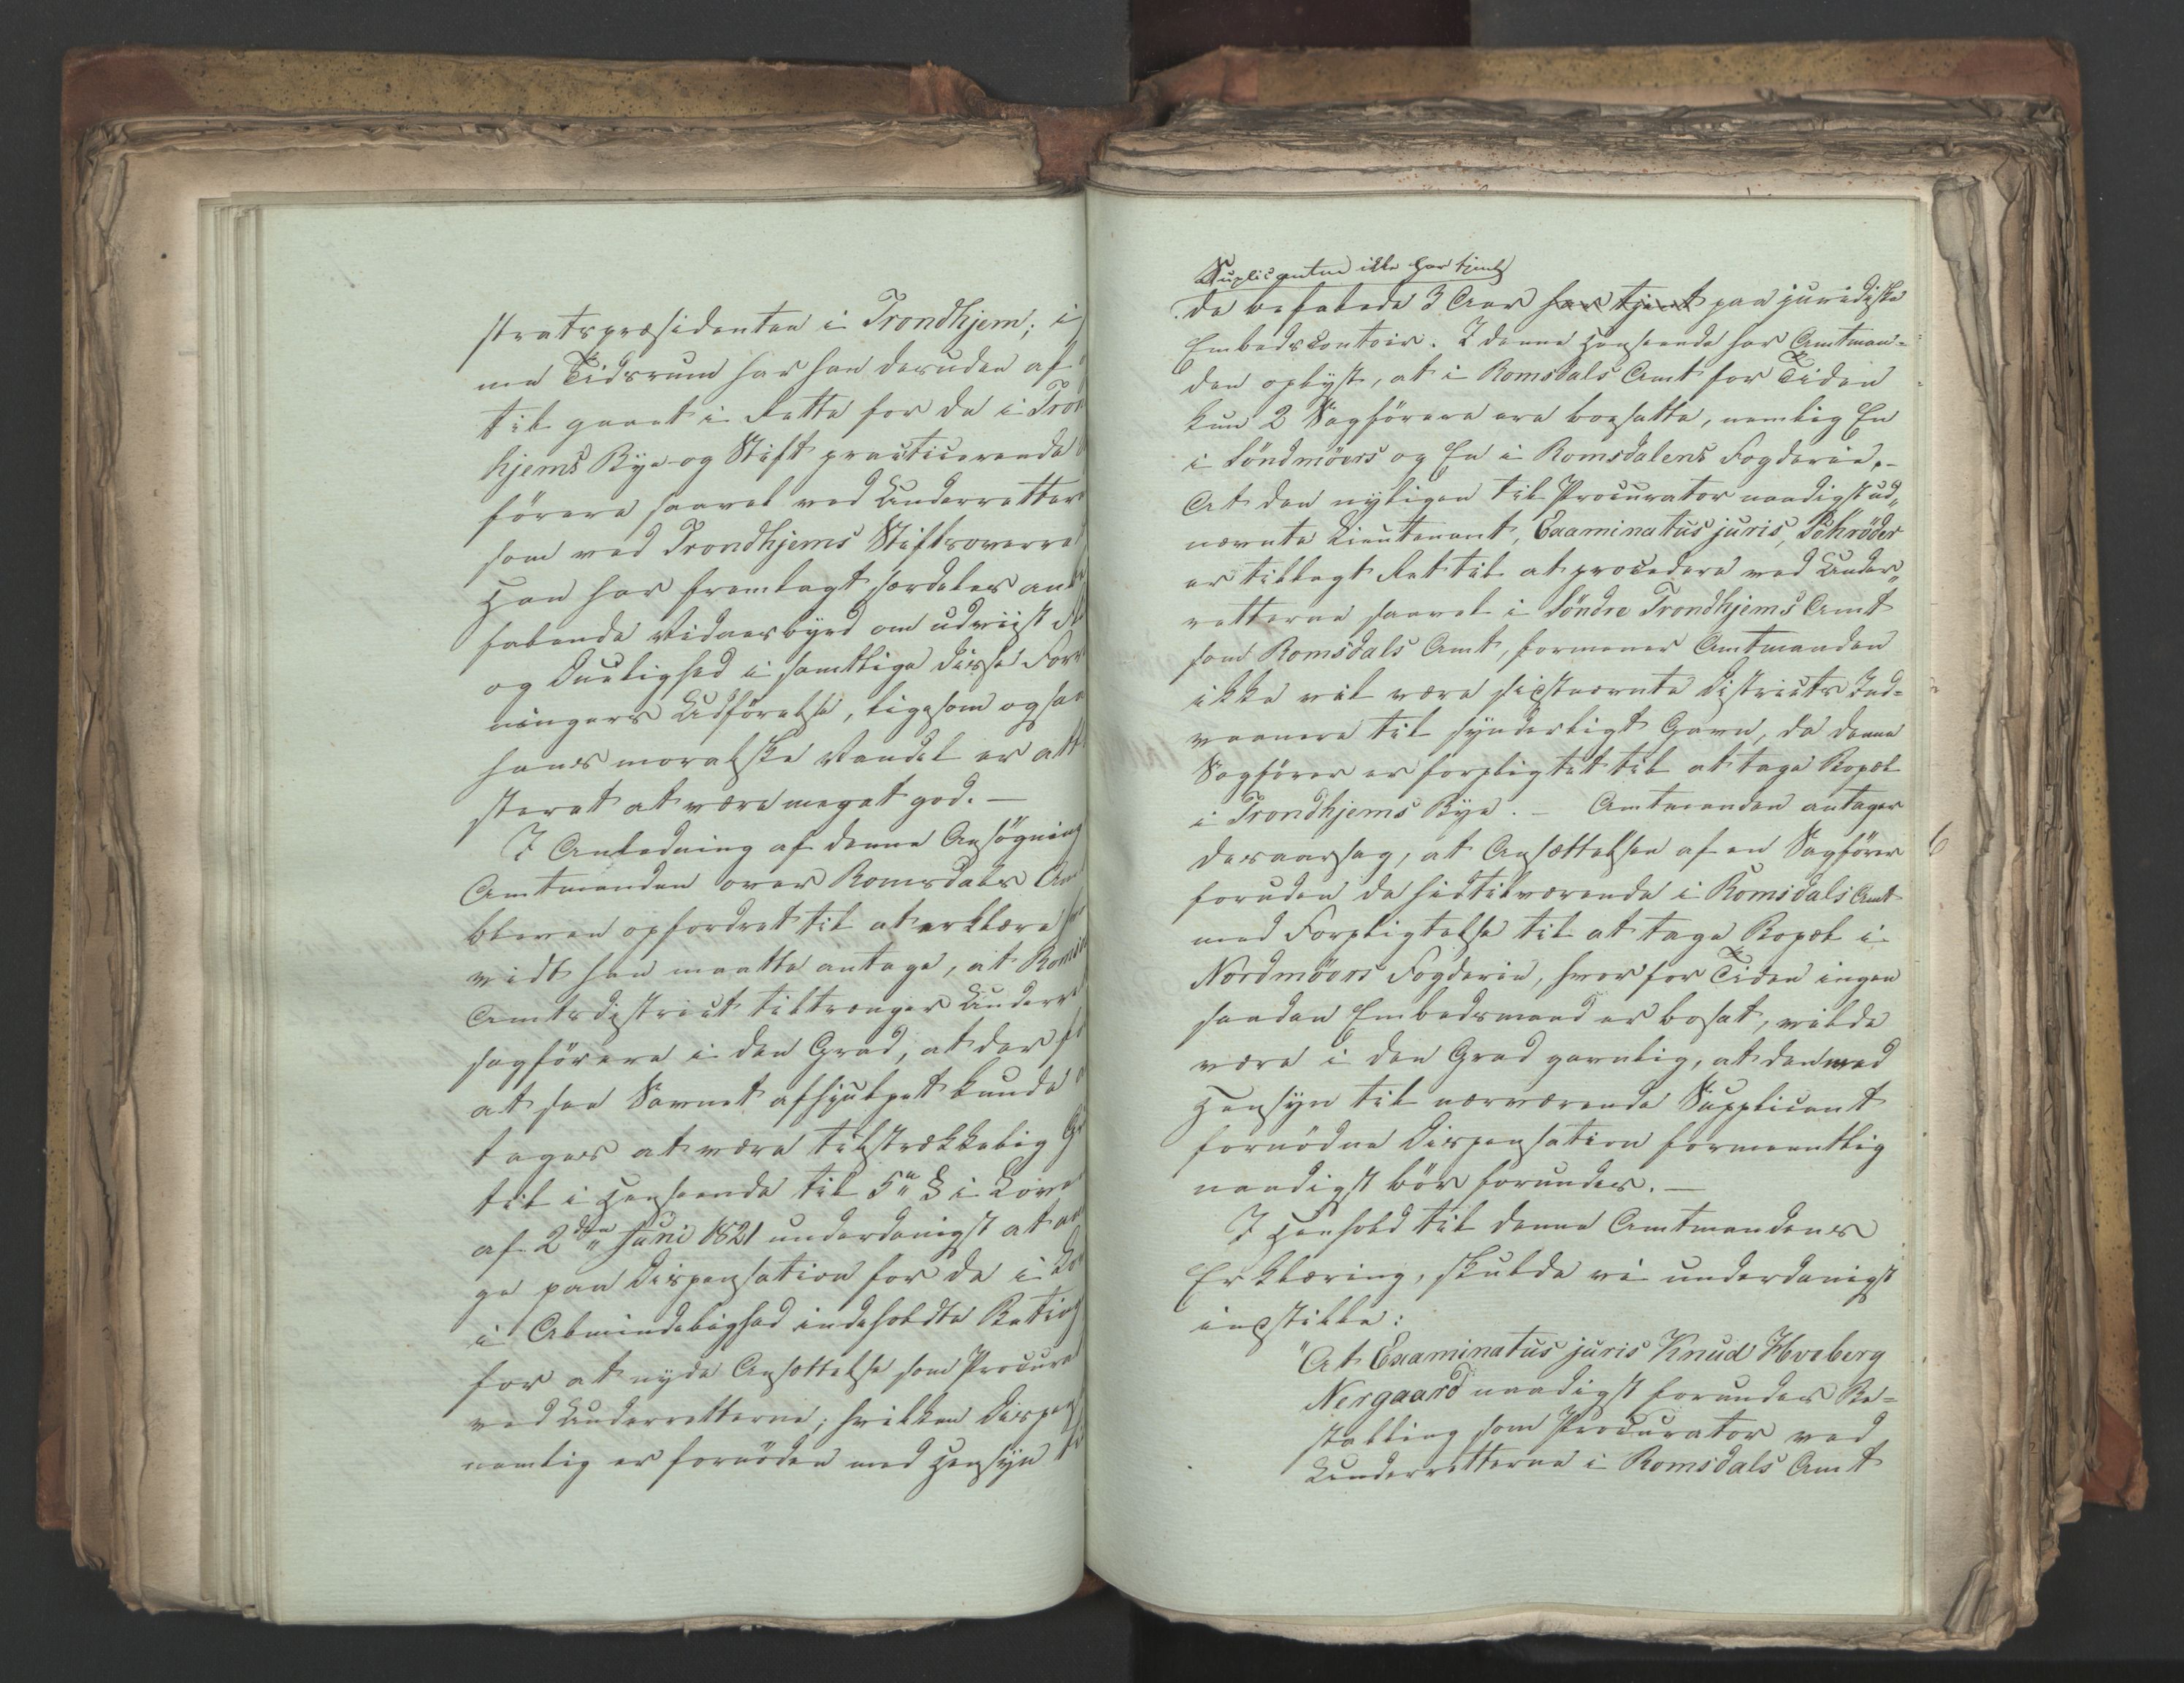 stratspræsidenten i Trondhjem; i
me Tidsrum har han desuden af
til gaaet i Rette for de i Tron
hjems Bye og Stift practicerende
förere saavel ved Underretter
som ved Trondhjems Stiftsoverre
Han har fremlagt særdeles anbe
falende Vidnesbyrd om udviist Fl
og Duelighed i samtlige disse Forr
ningers Udförelse, ligesom ogsaa
hans moralske Vandel er atte
steret at være meget god. —
I Anledning af denne Ansögning
Amtmanden over Romsdals Amt
bleven opfordret til at erklære hvo
vidt han maatte antage, at Romsd
Amtsdistrict tiltrænger Underre
sagförere i den Grad, at der for
at faa Savnet afhjulpet kunde an
tages at være tilstrækkelig Gr
til i Henseende til 5te § i Loven
af 2den Juni 1821 underdanigst at an
ge paa Dispensation for de i Lo
i Almindelighed indeholdte Beting
for at nyde Ansættelse som Procura
ved Underretterne; hvilken Dispen
nemlig er fornöden med Hensyn ti
Suplicanten ikke har tjent
de befalede 3 Aar har tjent paa juridiske
Embedscontoir. I denne Henseende har Amtman-
den oplyst, at i Romsdals Amt for Tiden
kun 2 Sagförere ere bosatte, nemlig En
i Söndmöers og En i Romsdalens Fogderie. -
At den nyligen til Procurator naadigst ud„
nævnte Lieutenant, Examinatus juris, Schröder
er tillagt Ret til at procedere ved Under„
retterne saavel i Söndre Trondhjems Amt
som Romsdals Amt, formener Amtmanden
ikke vil være sidstnævnte Districts Ind-
vaanere til synderligt Gavn, da denne
Sagförer er forpligtet til at tage Bopæl
i Trondhjems Bye. — Amtmanden antager
desaarsag, at Ansættelsen af en Sagförer
foruden de hidtilværende i Romsdals Amt
med Forpligtelse til at tage Bopæl i
Nordmöers Fogderie, hvor for Tiden ingen
saadan Embedsmand er bosat, vilde
være i den Grad gavnlig, at den med
Hensyn til nærværende Supplicant
fornödne Dispensation formeentlig
naadigst bör forundes. —
I Henhold til denne Amtmandens
Erklæring, skulde vi underdanigst
indstille:
"At Examinatus juris Knud Hveberg
Nergaard naadigst forundes Be-
stalling som Procurator ved
Underretterne i Romsdals Amt